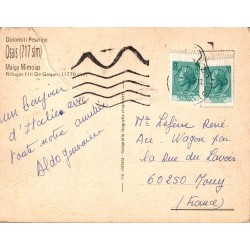 Dolomiti Pesarine
Osais (717 slm)
Malga Mimoias
Rifugio F.lli De Gasperi (1770 slm)
un Bonjour
d'Italie avec
toute notre amitié
Aldo
Mme Lefèvre René.
Au Wagon par
la rue du Lavoir
60250 Mouy
(France)